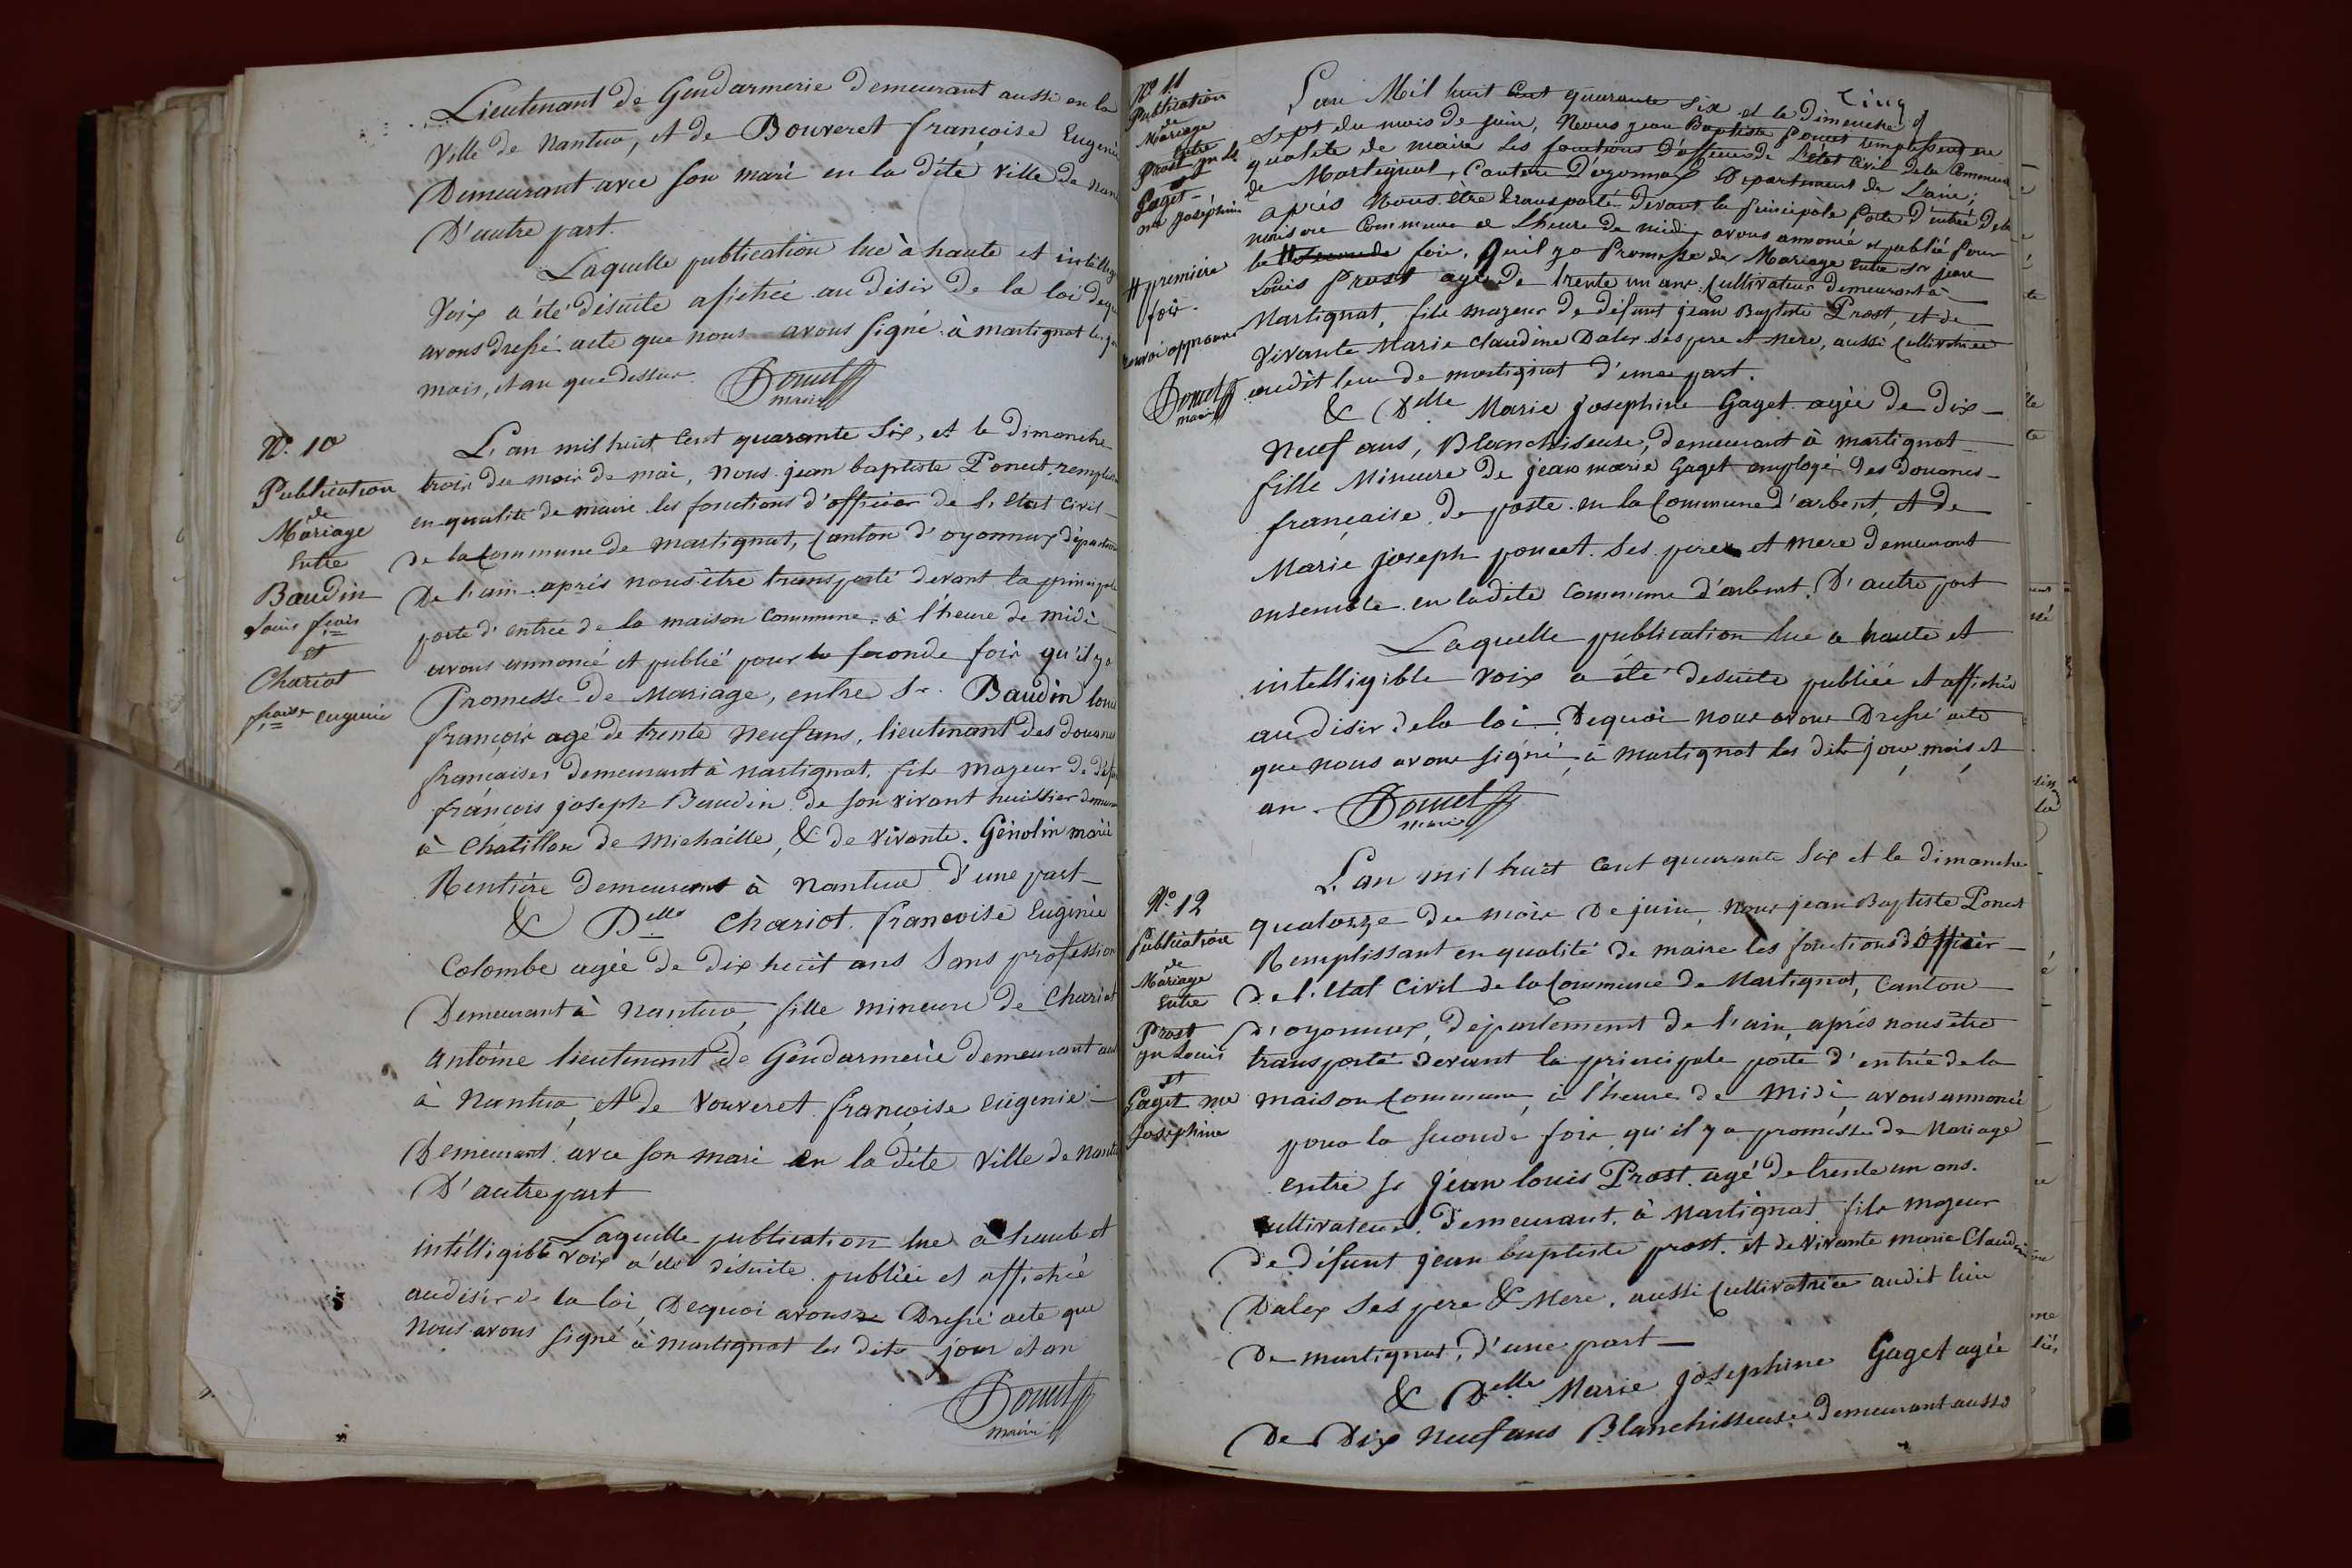 Lieutenant de Gendarmerie demeurant aussi en la
Ville de Nantua, et de Bouveret françoise Eugenie
Demeurant avec son mari en la dite ville de Nan
D'autre part.
Laquelle publication lue à haute et intellig
Voix a été désuite afichée au désir de la loi dequ
avons dressé acte que nous avons signé à martignat les j
mois, et an que dessus.
Poncet
maire
N° 10
Publication
de
Mariage
Entre
Baudin
Louis fçois
et
Chariot
fçoise eugenie
L'an mil huit cent quarante six, et le dimanche
trois du mois de mai, nous jean baptiste Poncet, remplis
en qualité de maire les fonctions d'officier de l'etat civil
de la Commune de martignat, Canton d'oyonnax départem
De l'ain après nous être transporté devant la principale
porte d'entrée de la maison commune, à l'heure de midi
avons annoncé et publié pour la seconde fois qu'il y a
Promesse de Mariage, entre Sr. Baudin louis
françois agé de trente neuf ans, lieutenant des douanes
françaises demeurant à martignat, fils majeur de défu
françois joseph Baudin de son vivant huissier demeu
à Chatillon de Michaille, & de vivante Génolin marie
Rentière demeurant à Nantua d'une part
& Delle Chariot françoise Eugénie
Colombe agée de dix huit ans Sans profession
Demeurant à Nantua, fille mineure de Chariot
antoine lieutenant de Gendarmerie demeurant au
à Nantua, et de Vouveret françoise eugenie
Demeurant avec son mari en la dite Ville de Nantu
D'autre part
Laquelle publication lue à haute et
intélligible voix a été désuite publiée et affichée
au désir de la loi, Dequoi avons Dressé acte que
Nous avons signé à Martignat les dits jour et an
Poncet
maire
N° 11
Publication
de
Mariage
Entre
Prost jn ls
et
Gaget
me joséphine
# première
fois.
renvoi approuvé
Poncet
maire
L'an Mil huit cent quarante six et le Dimanche
cinq
sept du mois de juin, Nous jean Baptiste Poncet remplissant en
qualité de maire les fonctions D'officier de L'état civil de la Commune
de Martignat, Canton D'oyonnax Département de L'ain;
après Nous être transporté devant la principale porte d'entrée de la
maison Commune à L'heure de midi, avons annoncé et publié pour
la # seconde fois, qu'il y a Promesse de Mariage entre Sr jean
Louis Prost agé de trente un ans Cultivateur demeurant à
Martignat, fils majeur de défunt jean Baptiste Prost, et de
Vivante Marie Claudine Dalex ses pere et mere, aussi Cultivatrice
audit lieu de martignat d'une part.
& Delle Marie Josephine Gaget agée de Dix
Neuf ans, Blanchiseuse, demeurant à martignat
fille Mineure de jean marie Gaget employé des Douanes
française, de poste en la Commune d'arbent, et de
Marie joseph poncet ses pere et mere demeurant
ensemble en ladite Commune d'arbent, D'autre part
Laquelle publication lue a haute et
intelligible voix a été desuite publiée et affichée
au désir de la loi Dequoi nous avons Dressé acte
que nous avons signé à Martignat les dits jour, mois et
an. Poncet
maire
N° 12
Publication
de
Mariage
Entre
Prost
jn Louis
et
Gaget me
Joséphine
L'an mil huit cent quarante six et le Dimanche
quatorze du mois De juin, nous jean Baptiste Poncet
Remplissant en qualité de maire les fonctions d'officier
de l'Etat Civil de la Commune de Martignat, Canton
d'oyonnax, département de l'ain, après nous être
transporté devant la principale porte d'entrée de la
maison Commune, à l'heure de midi, avons annoncée
pour la seconde fois qu'il y a promesse de Mariage
entre Sr Jean louis Prost agé de trente un ans.
Cultivateur Demeurant à Martignat fils majeur
de défunt jean baptiste prost et de vivante marie Claudine
Dalex ses pere & Mere, aussi Cultivatrice audit lieu
de martignat, d'une part
& Delle Marie josephine Gaget agée
De Dix neuf ans Blanchisseuse Demeurant aussi